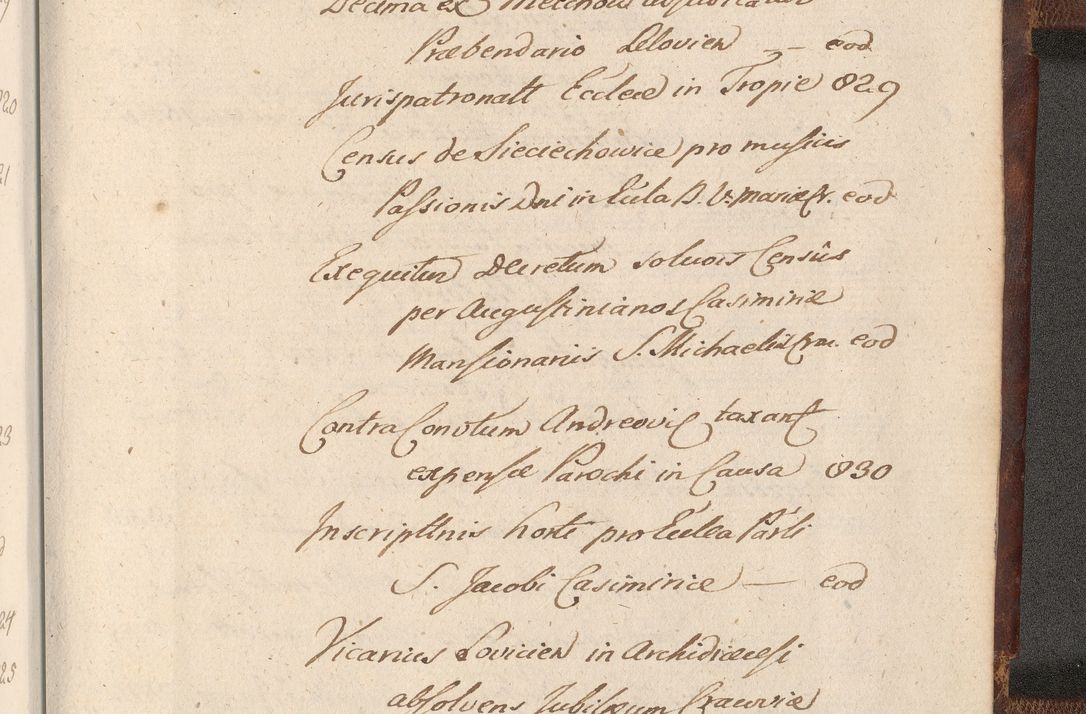 Decima ex Miechow adjudicatur
Præbendario Lelovien — eod
Jurispatronatt Eccleæ in Tropie 829
Census de Sieciechowice pro musicis
Passionis Dni in Eccla B. V. Mariæ Cr. eod
Exequitur Decretum solvois Censûs
per Augustinianos Casimiriæ
Mansionariis S. Michaelis Crac. eod
Contra Convtum Andreovie taxant
expensæ Parochi in Causa 830
Inscripttnis horti pro Ecclea Parli
S. Jacobi Casimiriæ — eod
Vicarius Lovicien in Archidiæcesi
absolvens Jubilæum Cracoviæ
20
21
23
24
25